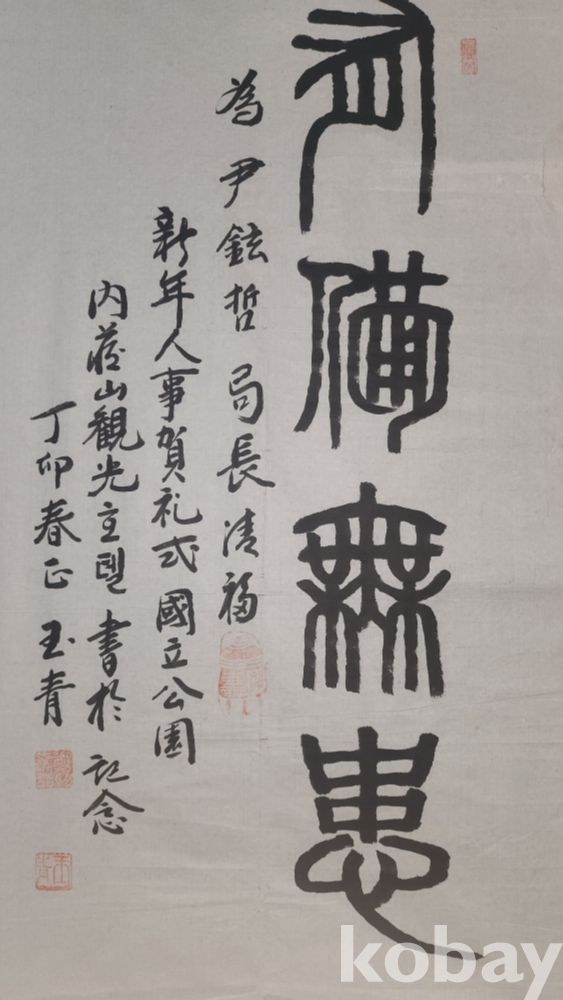 有備無患
為尹鉉哲局長清福
新年人事賀礼式 國立公園
内蔵山観光호텔 書於 記念
丁卯春正 玉青
kobay